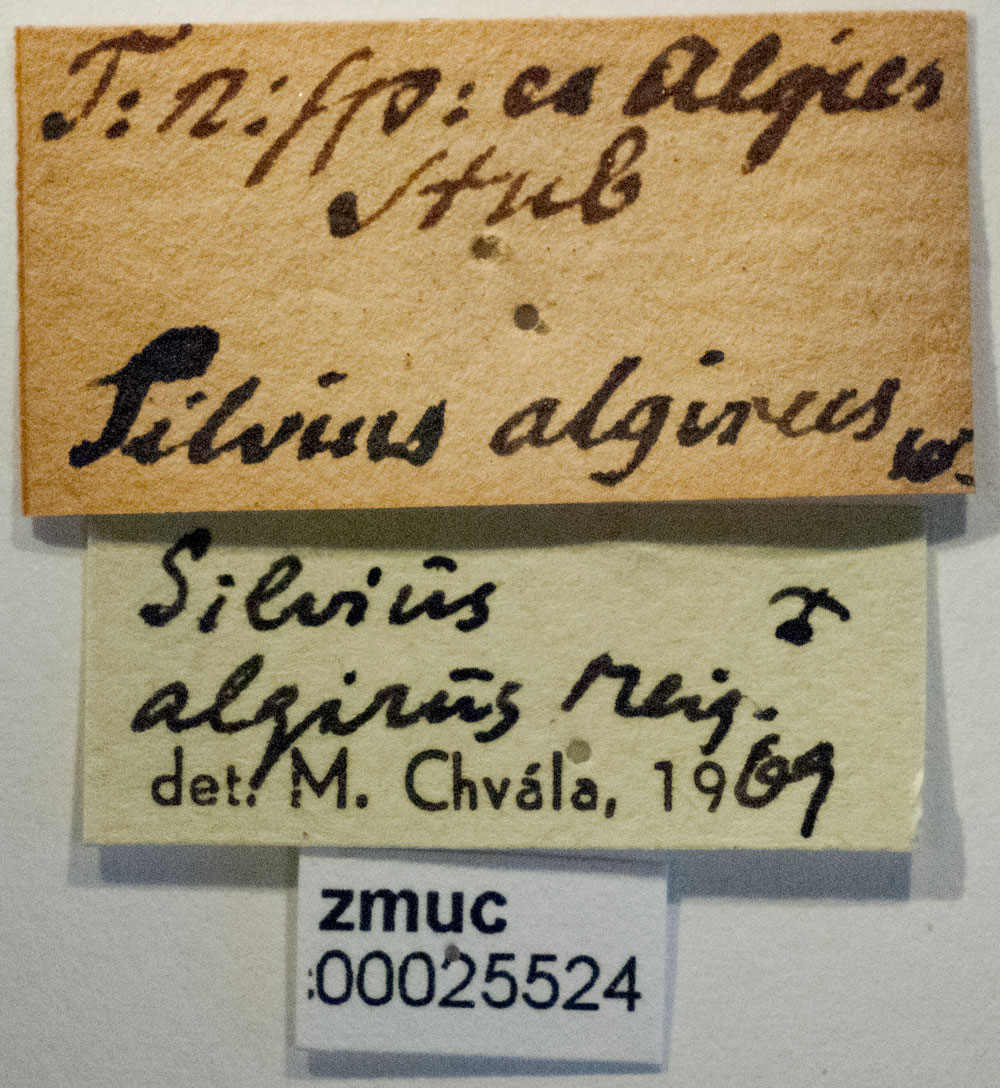 T: n: sp: ex Algier
Stub
Silvius algirus w.
Silviūs ♂
algirūs Meig.
det. M. Chvála, 1969
zmuc
:00025524